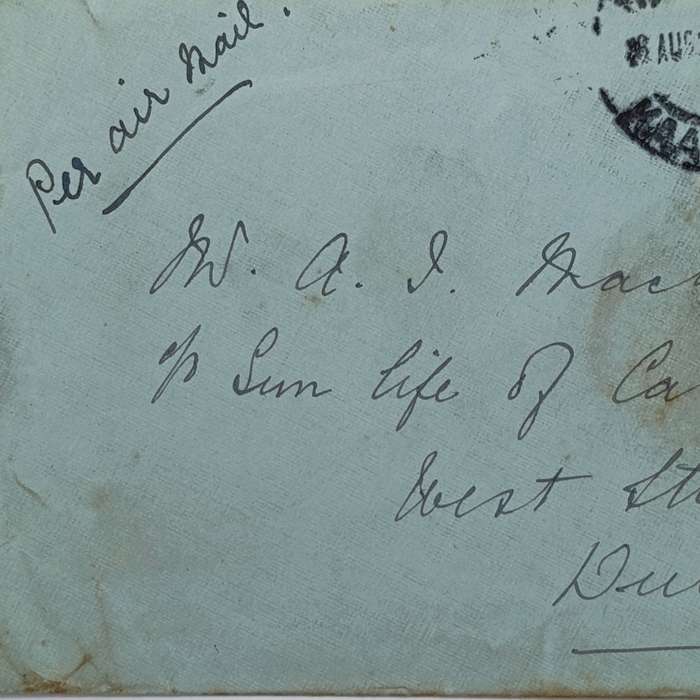 Per air Mail.
26 AUG
KAA
W. A. I. Mac
c/o Sun Life of Ca
West St
Du